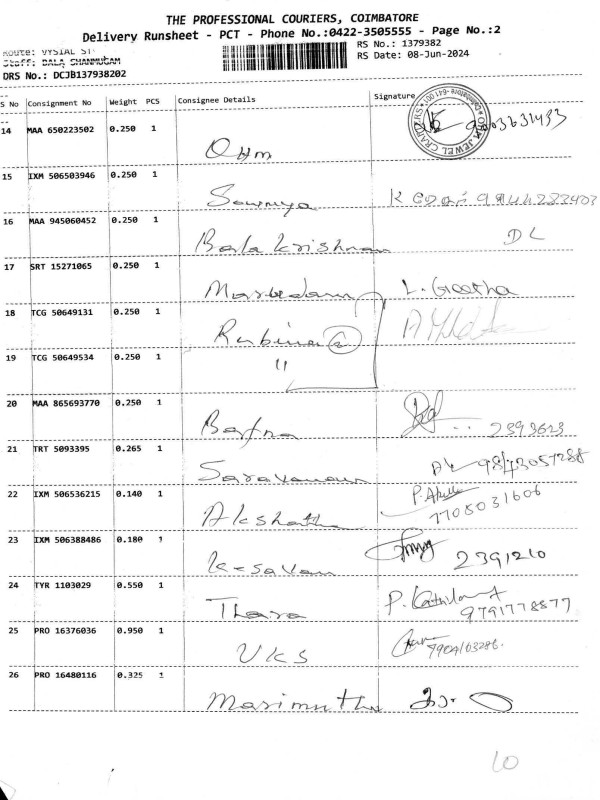 THE PROFESSIONAL COURIERS, COIMBATORE
Delivery Runsheet - PCT - Phone No.:0422-3505555 - Page No.:2
Route: VYSIAL ST
RS No.: 1379382
Staff: BALA SHANMUGAM
RS Date: 08-Jun-2024
DRS No.: DCJB137938202
S No Consignment No Weight PCS Consignee Details Signature
14 MAA 650223502 0.250 1
Ohm
15 IXM 506503946 0.250 1
Sowmya K
16 MAA 945060452 0.250 1
Bala Krishnan DL
17 SRT 15271065 0.250 1
L. Geetha
18 TCG 50649131 0.250 1
Rubina 2
19 TCG 50649534 0.250 1
"
20 MAA 865693770 0.250 1
Bafna 2393623
21 TRT 5093395 0.265 1
Saravanan
22 IXM 506536215 0.140 1
Akshatha 7708031606
23 IXM 506388486 0.180 1
Kesavan 2391210
24 TYR 1103029 0.550 1
Thara P. 9791778877
25 PRO 16376036 0.950 1
UKS
26 PRO 16480116 0.325 1
Marimuthu
10